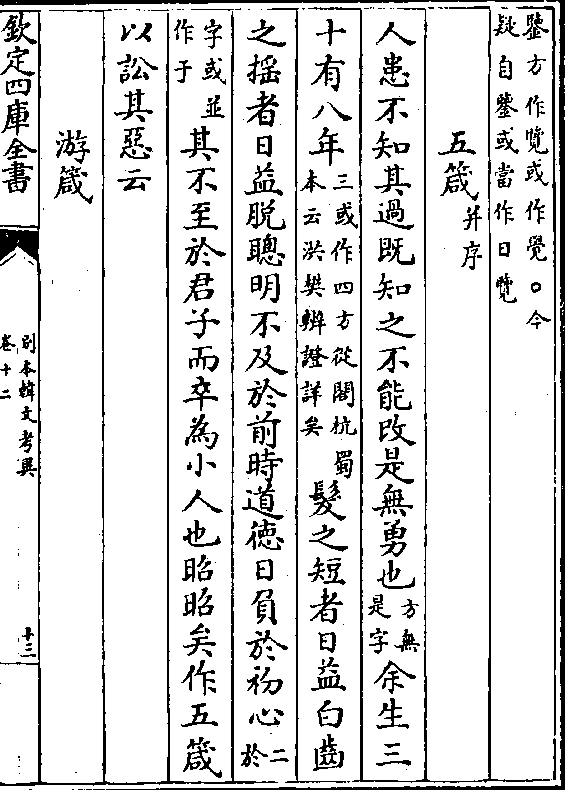 鑒方作覽或作覺○今
疑自鑒或當作日覽
五箴并序
人患不知其過既知之不能改是無勇也方無是字余生三
十有八年三或作四方從閣杭蜀本云洪樊辨證詳矣髮之短者日益白齒
之揺者日益脱聰明不及於前時道徳日負於初心二於
字或並作于其不至於君子而卒為小人也昭昭矣作五箴
以訟其惡云
游箴
欽定四庫全書
别本韓文考異
卷十二
十三